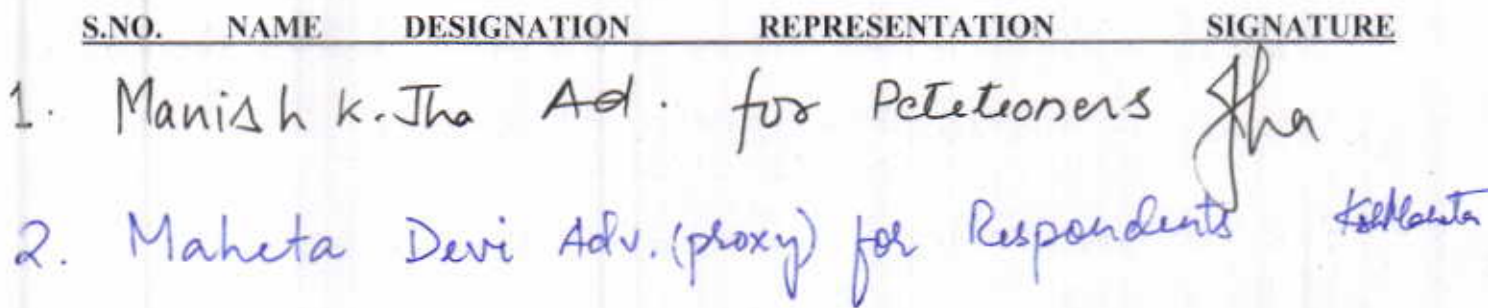 S.NO. NAME DESIGNATION REPRESENTATION SIGNATURE
1. Manish K. Jha Ad. for Petetioners Jha
2. Maheta Devi Adv. (proxy) for Respondents